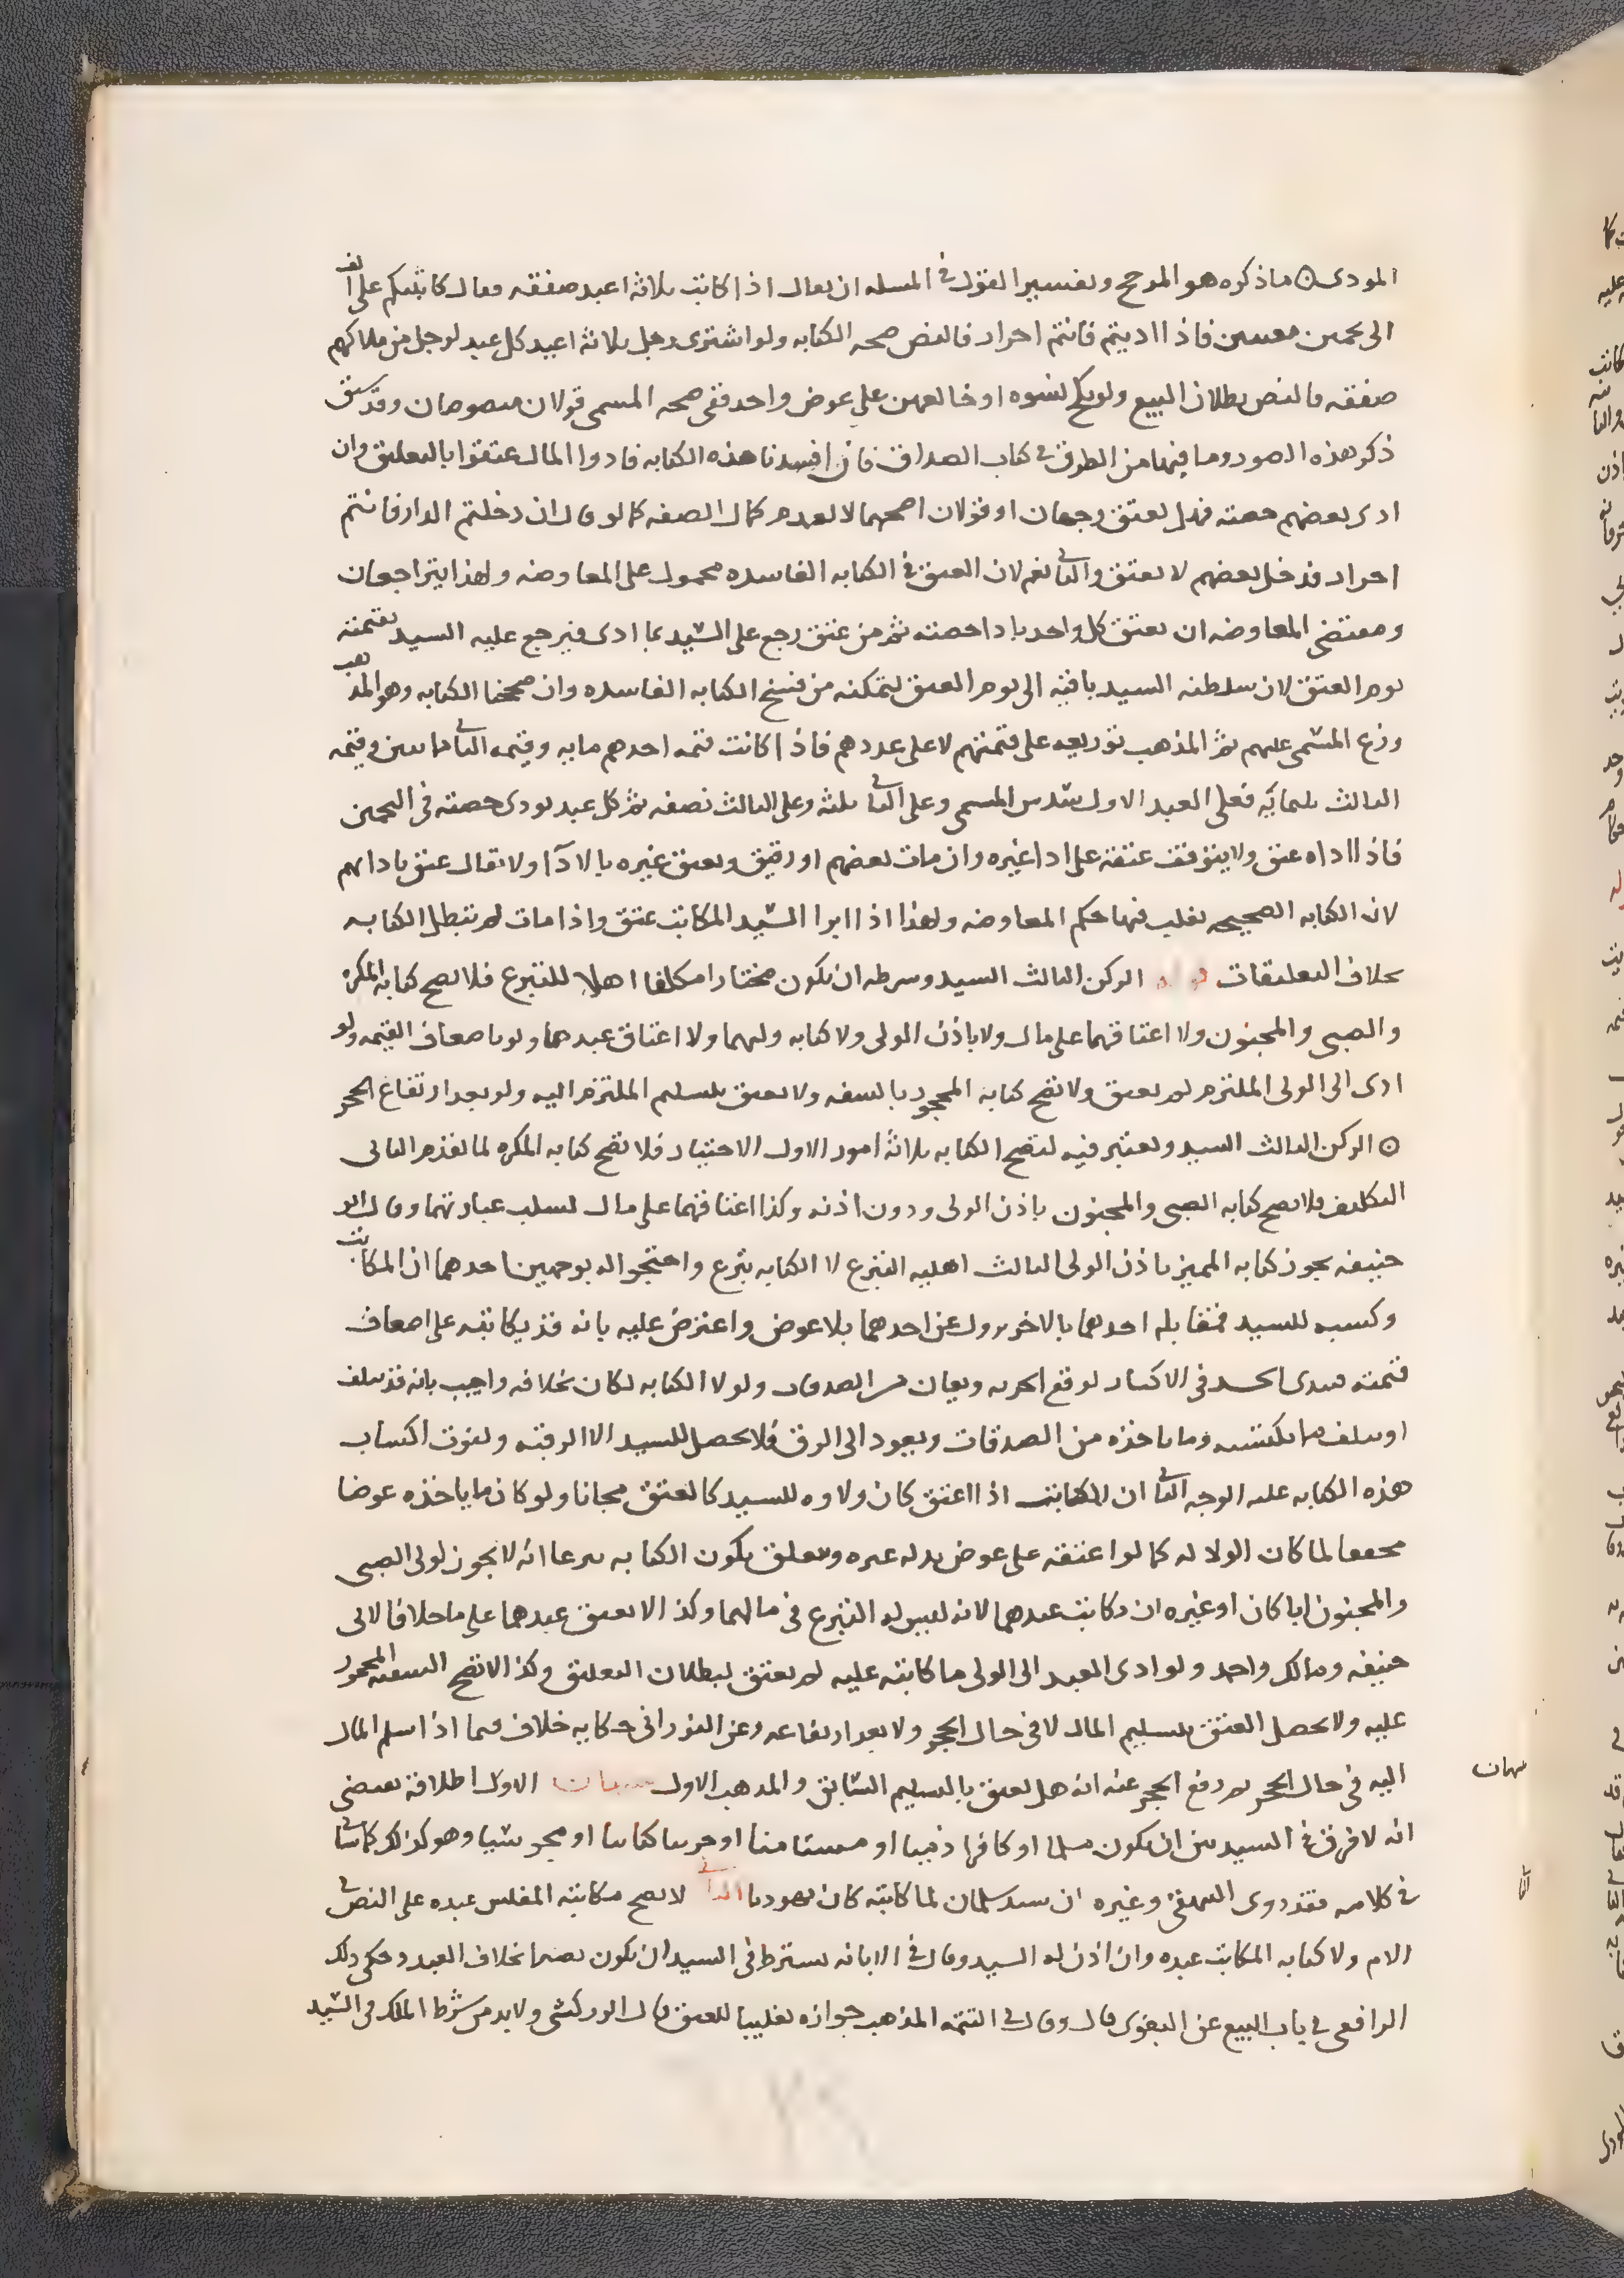 المودى ۞ ماذكره هو المرجح وتفسير القول في المسله ان يقال اذا كاتب ثلاثة اعبد صفقه فقال كاتبتكم على الف
الى نجمين معينين فاذا اديتم فانتم احرار فالنص صحه الكتابه ولو اشترى رجل ثلاثة اعبد كل عبد لرجل من ملاكهم
صفقه فالنص بطلان البيع ولو نكح نسوه او خالعهن على عوض واحد ففى صحه المسمى قولان منصوصان وقد سبق
ذكر هذه الصور وما فيها من الطرق في كتاب الصداق فان افسدنا هذه الكتابه فادوا المال عتقوا بالتعليق وان
ادى بعضهم حصته فهل يعتق وجهان او قولان اصحهما لا لعدم كمال الصفه كما لو قال ان دخلتم الدار فانتم
احرار فدخل بعضهم لا يعتق والثاني نعم لان العتق في الكتابه الفاسده محمول على المعاوضه ولهذا يتراجعان
ومقتضى المعاوضه ان يعتق كل واحد باداحصته ثم من عتق رجع على السيد بما ادى فيرجع عليه السيد بقيمته
يوم العتق لان سلطنه السيد باقيه الى يوم العتق لتمكنه من فسخ الكتابه الفاسده وان صححنا الكتابه وهو المذهب
وزع المسمى عليهم ثم المذهب توزيعه على قيمتهم لا على عددهم فاذا كانت قيمه احدهم مايه وقيمه الثاني مايتين وقيمه
الثالث ثلثمائه فعلى العبد الاول سدس المسمى وعلى الثاني ثلثه وعلى الثالث نصفه ثم كل عبد يودى حصته في النجمين
فاذا اداه عتق ولا يتوقف عتقه على ادا غيره وان مات بعضهم او رقيق ويعتق غيره بالادآ ولا يقال عتق بادايهم
لان الكتابه الصحيحه يغلب فيها حكم المعاوضه ولهذا اذا ابرا السيد المكاتب عتق واذا مات لم تبطل الكتابه
بخلاف التعليقات الركن الثالث السيد وشرطه ان يكون مختارا مكلفا اهلا للتبرع فلا تصح كتابه المكره
والصبى والمجنون ولا اعتاقهما على مال ولا باذن الولى ولا كتابه وليهما ولا اعتاق عبدهما ولو باضعاف القيمه ولو
ادى الى الولى الملتزم لم يعتق ولا تصح كتابه المحجور بالسفه ولا يعتق بتسليم الملتزم اليه ولو بعد ارتفاع الحجر
۞ الركن الثالث السيد ويعتبر فيه لتصح الكتابه ثلاثة امور الاول الاختيار فلا تصح كتابه المكره لما تقدم الثانى
التكليف فلا تصح كتابه الصبى والمجنون باذن الولى ودون اذنه وكذا اعتاقهما على مال لسلب عبارتهما وقال ابو
حنيفه يجوز كتابه المميز باذن الولى الثالث اهليه التبرع لان الكتابه تبرع واحتجوا له بوجهين احدهما ان المكاتب
وكسبه للسيد فمقابله احدهما بالاخر نزول عن احدهما بلا عوض واعترض عليه بانه قد يكاتبه على اضعاف
قيمته في الاكساب لوقع الحريه ويعان من الصدقات ولولا الكتابه لكان بخلافه واجيب بانه قد يتلف
او يتلف ما يكتسبه وما ياخذه من الصدقات ويعود الى الرق فلا يحصل للسيد الا الرقبه وتفوت اكتساب
هذه الكتابه عليه الوجه الثاني ان المكاتب اذا اعتق كان ولاوه للسيد كالعتق مجانا ولو كان ما ياخذه عوضا
محققا لما كان الولا له كما لو اعتقه على عوض بذله غيره ويتعلق بكون الكتابه تبرعا انه لا يجوز لولى الصبى
والمجنون ابا كان او غيره ان يكاتب عبدهما لانه ليس له التبرع في مالهما وكذا لا يعتق عبدهما على مال خلافا لابى
حنيفه ومالك واحمد ولو ادى العبد الى الولى ما كاتبه عليه لم يعتق لبطلان التعليق وكذا لا تصح السفيه المحجور
عليه ولا يحصل العتق بتسليم المال لا في حال الحجر ولا بعد ارتفاعه وعن الفورانى حكايه خلاف فيما اذا سلم المال
اليه في حال الحجر ثم رفع الحجر عنه انه هل يعتق بالتسليم السابق والمذهب الاول تنبيهات الاول اطلاقه يقتضى
انه لا فرق في السيد بين ان يكون مسلما او كافرا ذميا او مستامنا او حربيا كتابيا او مجوسيا وهو كذلك كما سياتي
في كلامه فقد روى البيهقى وغيره ان سيد سلمان لما كاتبه كان يهوديا الثاني لا تصح مكاتبه المفلس عبده على النص في
الام ولا كتابه المكاتب عبده وان اذن له السيد وقال في الابانه يشترط في السيد ان يكون بصيرا بخلاف العبد وحكى ذلك
الرافعى في باب البيع عن البغوى قال وقال في التتمه المذهب جوازه تغليبا للعتق قال الزركشى ولابد من شرط الملك في السيد
تنبيهات
الثاني